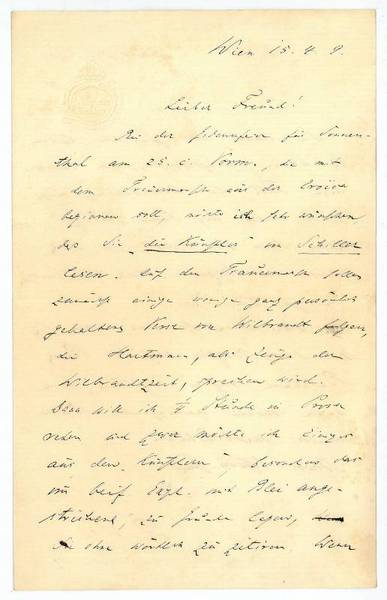 Wien 15. 4. 9.
Lieber Freund!
Bei der Gedenkfeier für Sonnen-
thal am 25. c. Vorm., die mit
dem Trauermarsch aus der Eroica
beginnen soll, möchte ich sehr wünschen,
daß Sie "die Künstler" von Schiller
lesen. Auf den Trauermarsch sollen
zunächst einige wenige ganz persönlich
gehaltene Verse von Wilbrandt folgen,
die Hartmann, als Zeuge der
Wilbrandtzeit, sprechen wird.
Dann will ich ¼ Stunde in Prosa
reden und zwar möchte ich einiges
aus den "Künstlern", besonders das
im beif. Expl. mit Blei ange-
strichene, zu Grunde legen,
die ohne wörtlich zu zitiren. Wenn